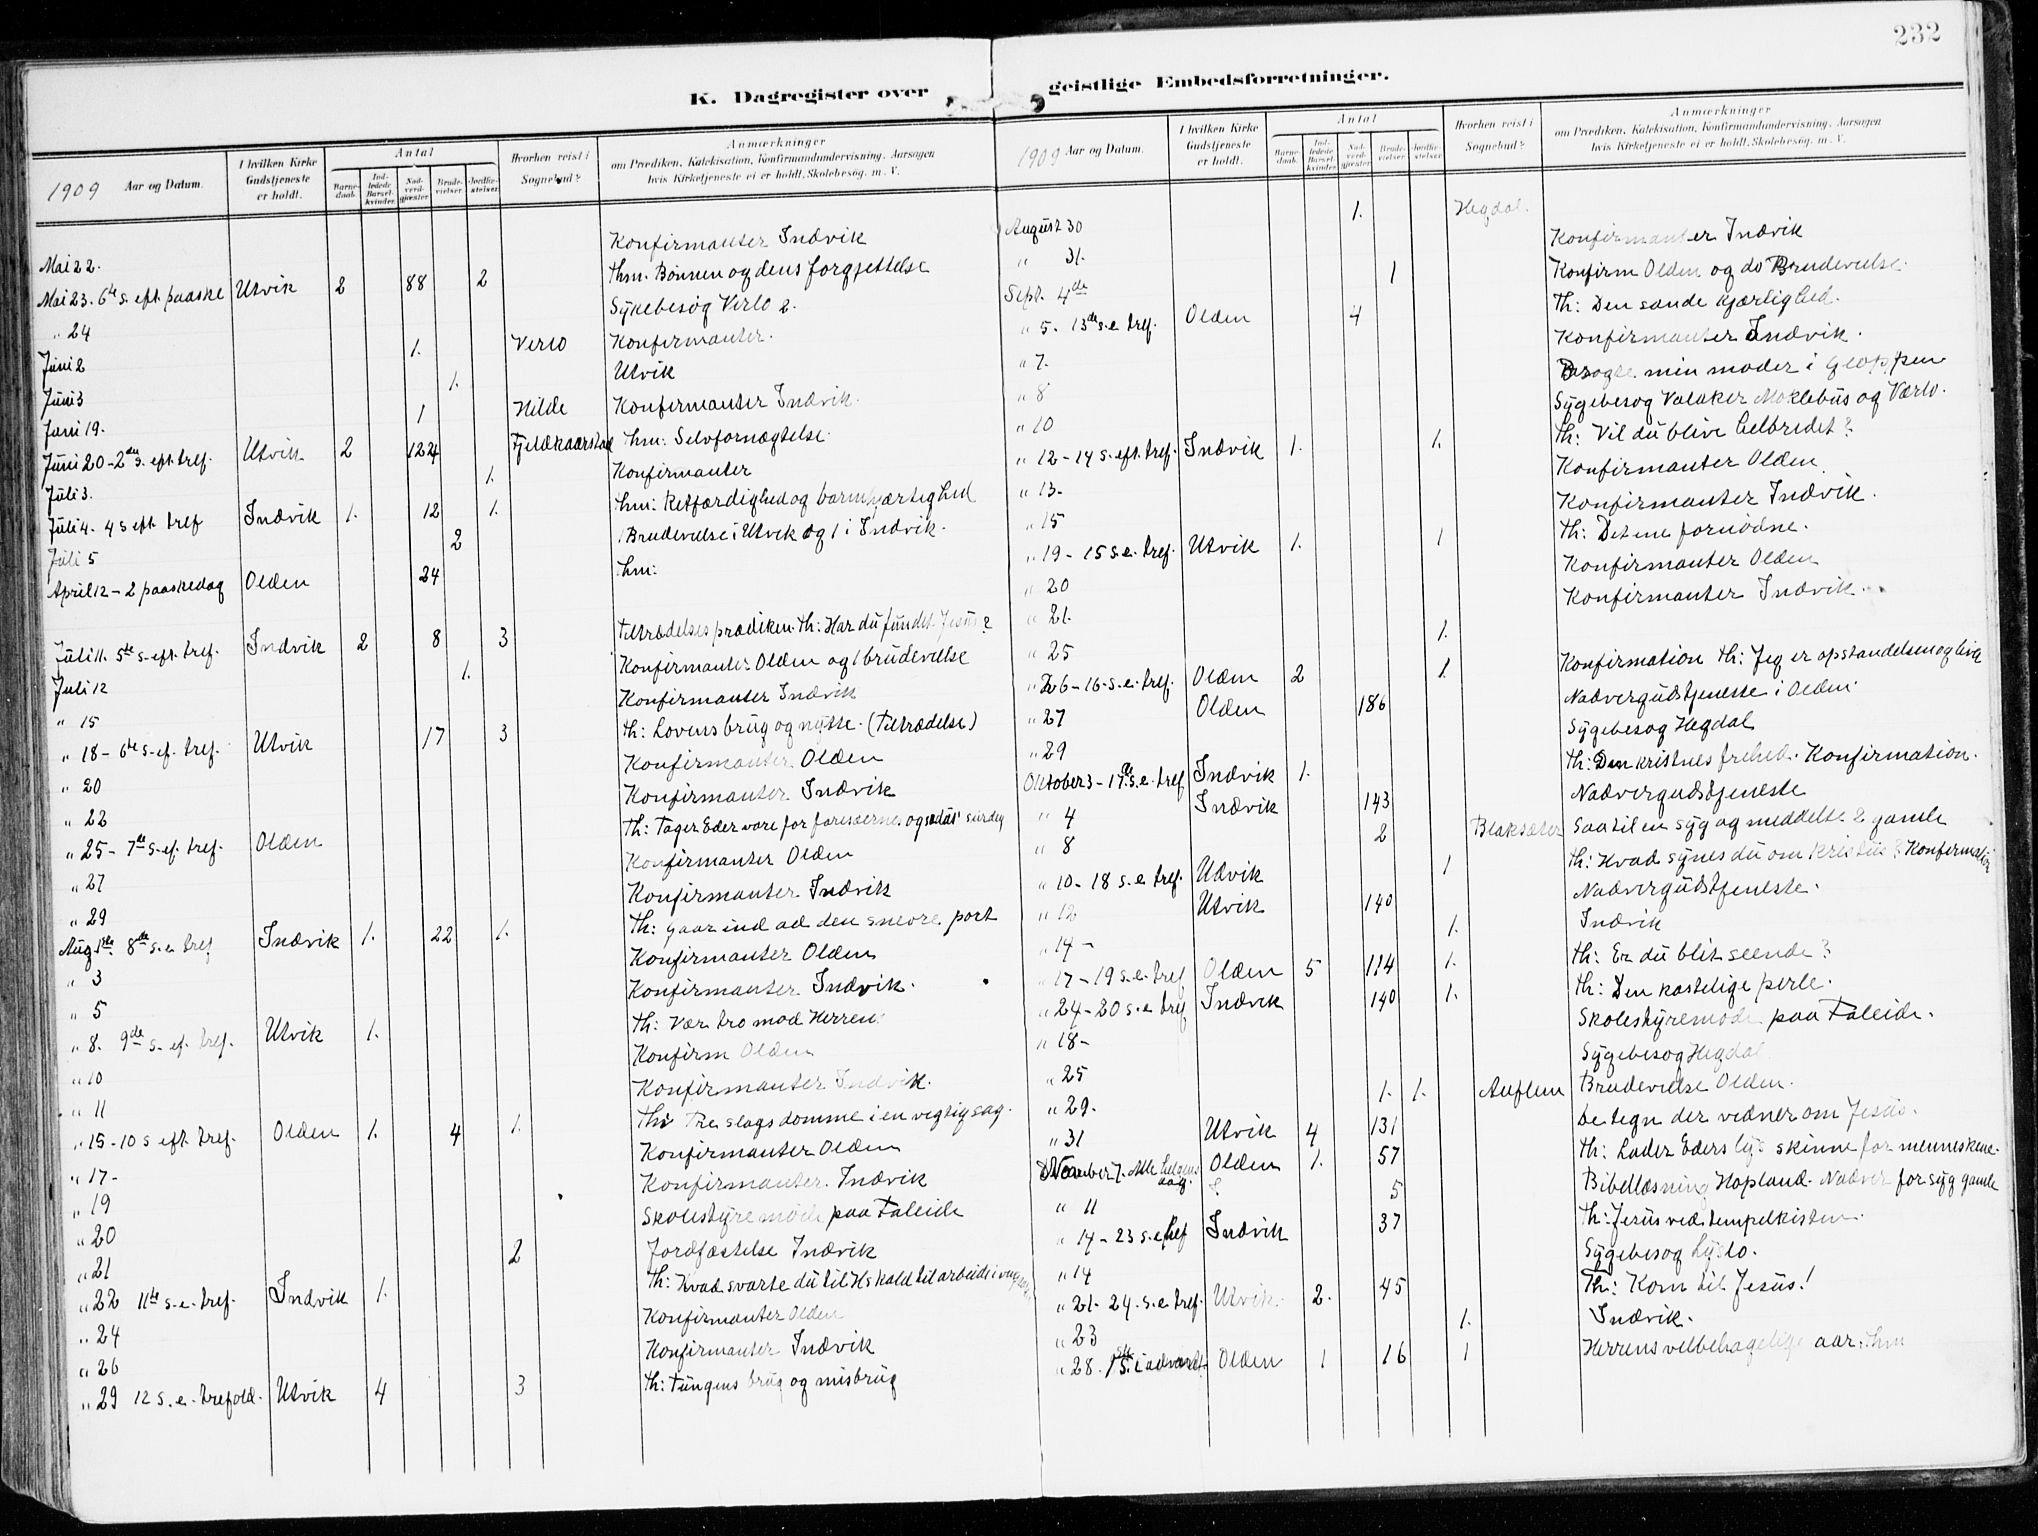 232
K. Dagregister over geistlige Embedsforretninger.
1909 Aar og Datum.
I hvilken Kirke Gudstjeneste er holdt.
Antal
Barnedaab.
Indledede Barselkvinder.
Nadverdgjæster
Brudevielser
Jordfæstelser
Hvorhen reist i Sognebud?
Anmærkninger
om Prædiken, Katekisation, Konfirmandundervisning, Aarsagen
hvis Kirketjeneste ei er holdt, Skolebesøg. m. V.
Mai 22. Konfirmanter Indvik
Mai 23. 6te s. eft. paaske Utvik 2 88 2 thm. Bønnen og dens forgjettelse
" 24 1. Verlo Sykebesøg Verlo 2.
Juni 2 Konfirmanter.
Juni 3 1. Utvik
Juni 19. 1 Hilde Konfirmanter Indvik.
Juni 20 - 2den s. eft. tref. Utvik 2 124 Fjeldkaarstad thm: Selvfornægtelse
Juli 3. 1. Konfirmanter
Juli 4. 4 s eft. tref Indvik 1. 12 1. thm: Retfærdighed og barmhjærtighed
Juli 5 2 1 Brudevielse i Utvik og 1 i Indvik.
April 12 - 2 paaskedag Olden 24 thm:
Juli 11. 5te s. eft. tref. Indvik 2 8 3 Tiltrædelsesprædiken. th: Har du fundet Jesus?
Juli 12 1. Konfirmanter Olden og 1 brudevielse
" 15 Konfirmanter Indvik
" 18 - 6te s. ef. tref. Utvik 17 3 th: Lovens brug og nytte. (Tiltrædelse)
" 20 Konfirmanter Olden
" 22 Konfirmanter Indvik
" 25 - 7de s. ef. tref. Olden th: Tager Eder vare for farisæernes og surdeg
" 27 Konfirmanter Olden
" 29 Konfirmanter Indvik
Aug 1ste 8de s. e. tref Indvik 1. 22 1. th: gaar ind ad den snevre port
" 3 Konfirmanter Olden
" 5 Konfirmanter Indvik.
" 8. 9de s. ef. tref. Utvik 1. th: Vær tro mod Herren
" 10 Konfirm Olden
" 11 Konfirmanter Indvik.
" 15 - 10 s eft. tref. Olden 1. 4 1. th: Tre slags domme i en vegtig sag.
" 17 - Konfirmanter Olden
" 19 Konfirmanter Indvik
" 20 Skolestyremøde paa Faleide
" 21 2 Jordfæstelse Indvik
" 22 11te s. e. tref. Indvik 1. th: Hvad svarte du til Hs kald til arbeide i
" 24 Konfirmanter Olden
" 26 Konfirmanter Indvik
" 29 12 s. e. trefold. Utvik 4 3 th: Tungens brug og misbrug
1909 Aar og Datum.
I hvilken Kirke Gudstjeneste er holdt.
Antal
Barnedaab.
Indledede Barselkvinder
Nadverdgjæster
Brudevielser
Jordfæstelser
Hvorhen reist i Sognebud?
Anmærkninger
om Prædiken, Katekisation, Konfirmandundervisning, Aarsagen
hvis Kirketjeneste ei er holdt, Skolebesøg. m. V.
August 30 1. Hegdal.
" 31. Konfirmanter Indvik
Sept. 4de 1 Konfirm Olden og do Brudevielse.
" 5. 13de s. e. tref. Olden 4 th: Den sande kjærlighed.
" 7. Konfirmanter Indvik.
" 8 Besøgte min moder i Gloppen
" 10 Sygebesøg Valaker Moklebus og Værlo.
" 12 - 14 s. eft. tref. Indvik 1. 1. th: Vil du blive helbredet?
" 13. Konfirmanter Olden.
" 15 Konfirmanter Indvik.
" 19 - 15 s. e. tref. Utvik 1. 1 th: Det ene fornødne.
" 20 Konfirmanter Olden
" 21. Konfirmanter Indvik.
" 25 1.
" 26 - 16 s. e. tref. Olden 2 1. Konfirmation th: Jeg er opstandelsen og livet
" 27 Olden 186 Nadvergudstjeneste i Olden
" 29 Sygebesøg Hegdal
Oktober 3 - 17de s. e. tref Indvik 1. th: Den kristnes frihed. Konfirmation.
" 4 Indvik 143 Nadvergudstjeneste
" 8 2 Blaksæter Saa til en syg og meddelt. 2 gamle
" 10 - 18 s. e. tref. Udvik 1 th: Hvad synes du om Kristus? Konfirmation
" 12 Utvik 140 Nadvergudstjeneste.
" 14 - 1. Indvik
" 17 - 19 s. e. tref Olden 5 114 1. th: Er du blit seende?
" 24 - 20 s. e. tref Indvik 140 1. th: Den kostelige perle.
" 18 - Skolestyremøde paa Faleide.
" 25 Sygebesøg Hegdal
" 29. 1. 1. Auflem Brudevielse Olden.
" 31 Utvik 4 131 De tegn der vidner om Jesus.
November 7. Alle helgens dag. Olden 1. 57 th: Lader Eders lys skinne for menneskene.
" 11 5 Bibellæsning Hopland. Nadver for syg gamle
" 14 - 23 s. e. tref Indvik 37 th: Jesus ved tempelkisten.
" 14 Sygebesøg Lyslo.
" 21. 24. s. e. tref. Utvik 2. 45 Th: Kom til Jesus!
" 23 1. Indvik.
" 28. 1ste s. i advent Olden 1 16 1 Herrens velbehagelige aar: thm